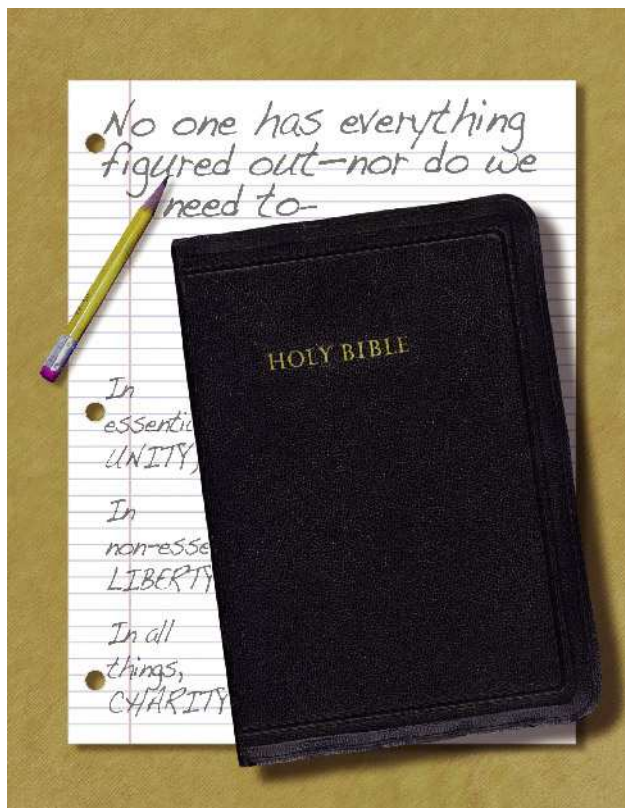 No one has everything
figured out—nor do we
need to—
HOLY BIBLE
In
UNITY,
In
LIBERTY
In all
things,
CHARITY